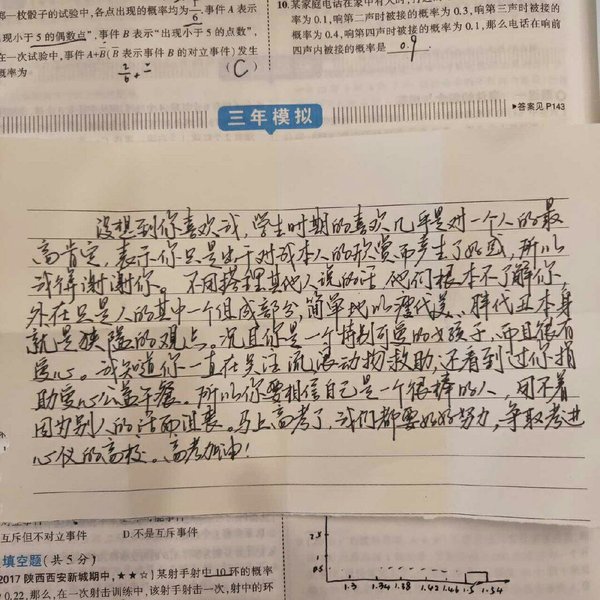 那一枚骰子的试验中，各点出现的概率均为1/6，事件A表示
“出现小于5的偶数点”，事件B表示“出现小于5的点数”，
在一次试验中，事件A+B̄(B̄表示事件B的对立事件)发生
概率为 (C)
10.某家庭电话在家中有人时，
率为0.1，响第二声时被接的概率为0.3，响第三声时被接的
概率为0.4，响第四声时被接的概率为0.1，那么电话在响前
四声内被接的概率是 0.9 .
▶答案见P143
三年模拟
没想到你喜欢我，学生时期的喜欢几乎是对一个人的最
高肯定，表示你只是出于对我本人的欣赏而产生了好感，所以
我得谢谢你。不用搭理其他人说的话，他们根本不了解你，
外在只是人的其中一个组成部分，简单地以瘦代美、胖代丑本身
就是狭隘的观点。况且你是一个特别可爱的女孩子，而且很有
爱心。我知道你一直在关注流浪动物救助，还看到过你捐
助爱心公益午餐。所以你要相信自己是一个很棒的人，用不着
因为别人的话而沮丧。马上高考了，我们都要好好努力，争取考进
心仪的高校。高考加油！
互斥但不对立事件 D.不是互斥事件
填空题(共5分)
2017陕西西安新城期中，★★☆]某射手射中10环的概率
0.22，那么，在一次射击训练中，该射手射击一次，射中的环
2.5
0.5
1.3 1.34 1.38 1.42 1.46 1.5 1.54